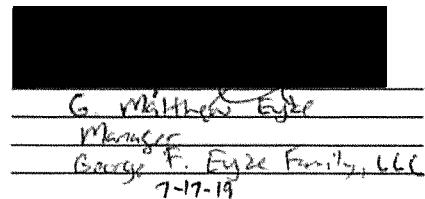 G. Matthew Eyke
Manager
George F. Eyke Family, LLC
7-17-19